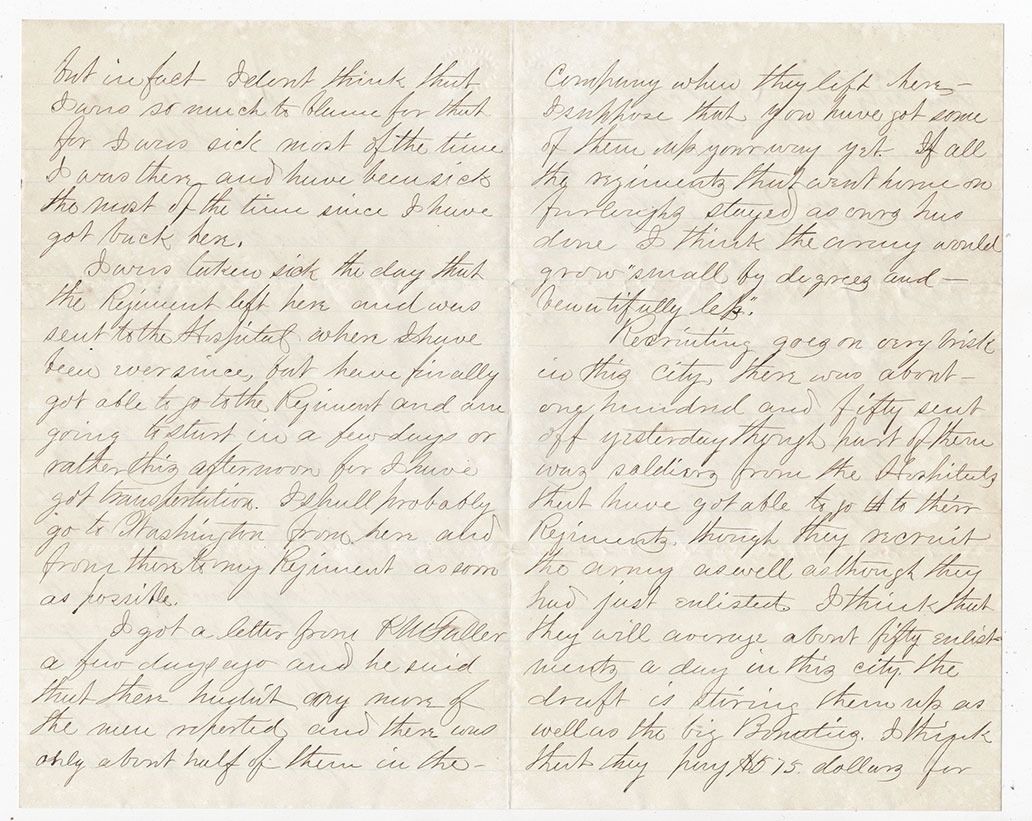 but in fact I dont think that
I was so much to blame for that
for I was sick most of the time
I was there and have been sick
the most of the time since I have
got back here.
I was taken sick the day that
the Regiment left here and was
sent to the Hospital where I have
been ever since, but have finally
got able to go to the Regiment and am
going to start in a few days or
rather this afternoon for I have
got transportation. I shall probably
go to Washington from here and
from there to my Regiment as soon
as possible.
I got a letter from Fuller
a few days ago and he said
that there hadn't any more of
the men reported and there was
only about half of them in the-
Company when they left here-
I suppose that you have got some
of them up your way yet. If all
the regiments that went home on
furloughs stayed as ours has
done I think the army would
grow "small by degrees and-
beautifully less".
Recruiting goes on very brisk
in this city, there was about-
one hundred and fifty sent
off yesterday though part of them
was soldiers from the Hospitals
that have got able to go to their
Regiments. though they recruit
the army as well as though they
had just enlisted. I think that
they will average about fifty enlist-
ments a day in this city. the
draft is stiring them up as
well as the big Bounties. I think
that they pay $575. dollars for